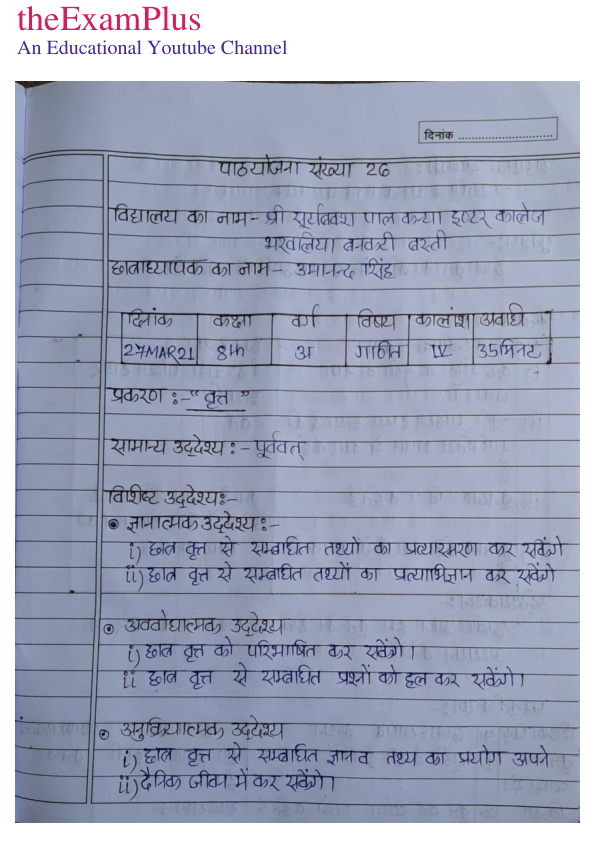 theExamPlus
An Educational Youtube Channel
दिनांक ..............................
पाठयोजना संख्या 26
विद्यालय का नाम - श्री सूर्यबक्श पाल कन्या इण्टर कालेज
भरवलिया बनकटी बस्ती
छात्राध्यापक का नाम - उमानन्द सिंह
दिनांक कक्षा वर्ग विषय कालांश अवधि
27MAR21 8th अ गणित IV 35मिनट
प्रकरण :- "वृत्त"
सामान्य उद्देश्य :- पूर्ववत्
विशिष्ट उद्देश्य:-
ज्ञानात्मक उद्देश्य:-
i) छात्र वृत्त से सम्बाधित तथ्यों का प्रत्यास्मरण कर सकेंगे
ii) छात्र वृत्त से सम्बाधित तथ्यों का प्रत्याभिज्ञान कर सकेंगे
अवबोधात्मक उद्देश्य
i) छात्र वृत्त को परिभाषित कर सकेंगे।
ii छात्र वृत्त से सम्बाधित प्रश्नों को हल कर सकेंगे।
अनुक्रियात्मक उद्देश्य
i) छात्र वृत्त से सम्बाधित ज्ञान व तथ्य का प्रयोग अपने
ii) दैनिक जीवन में कर सकेंगे।